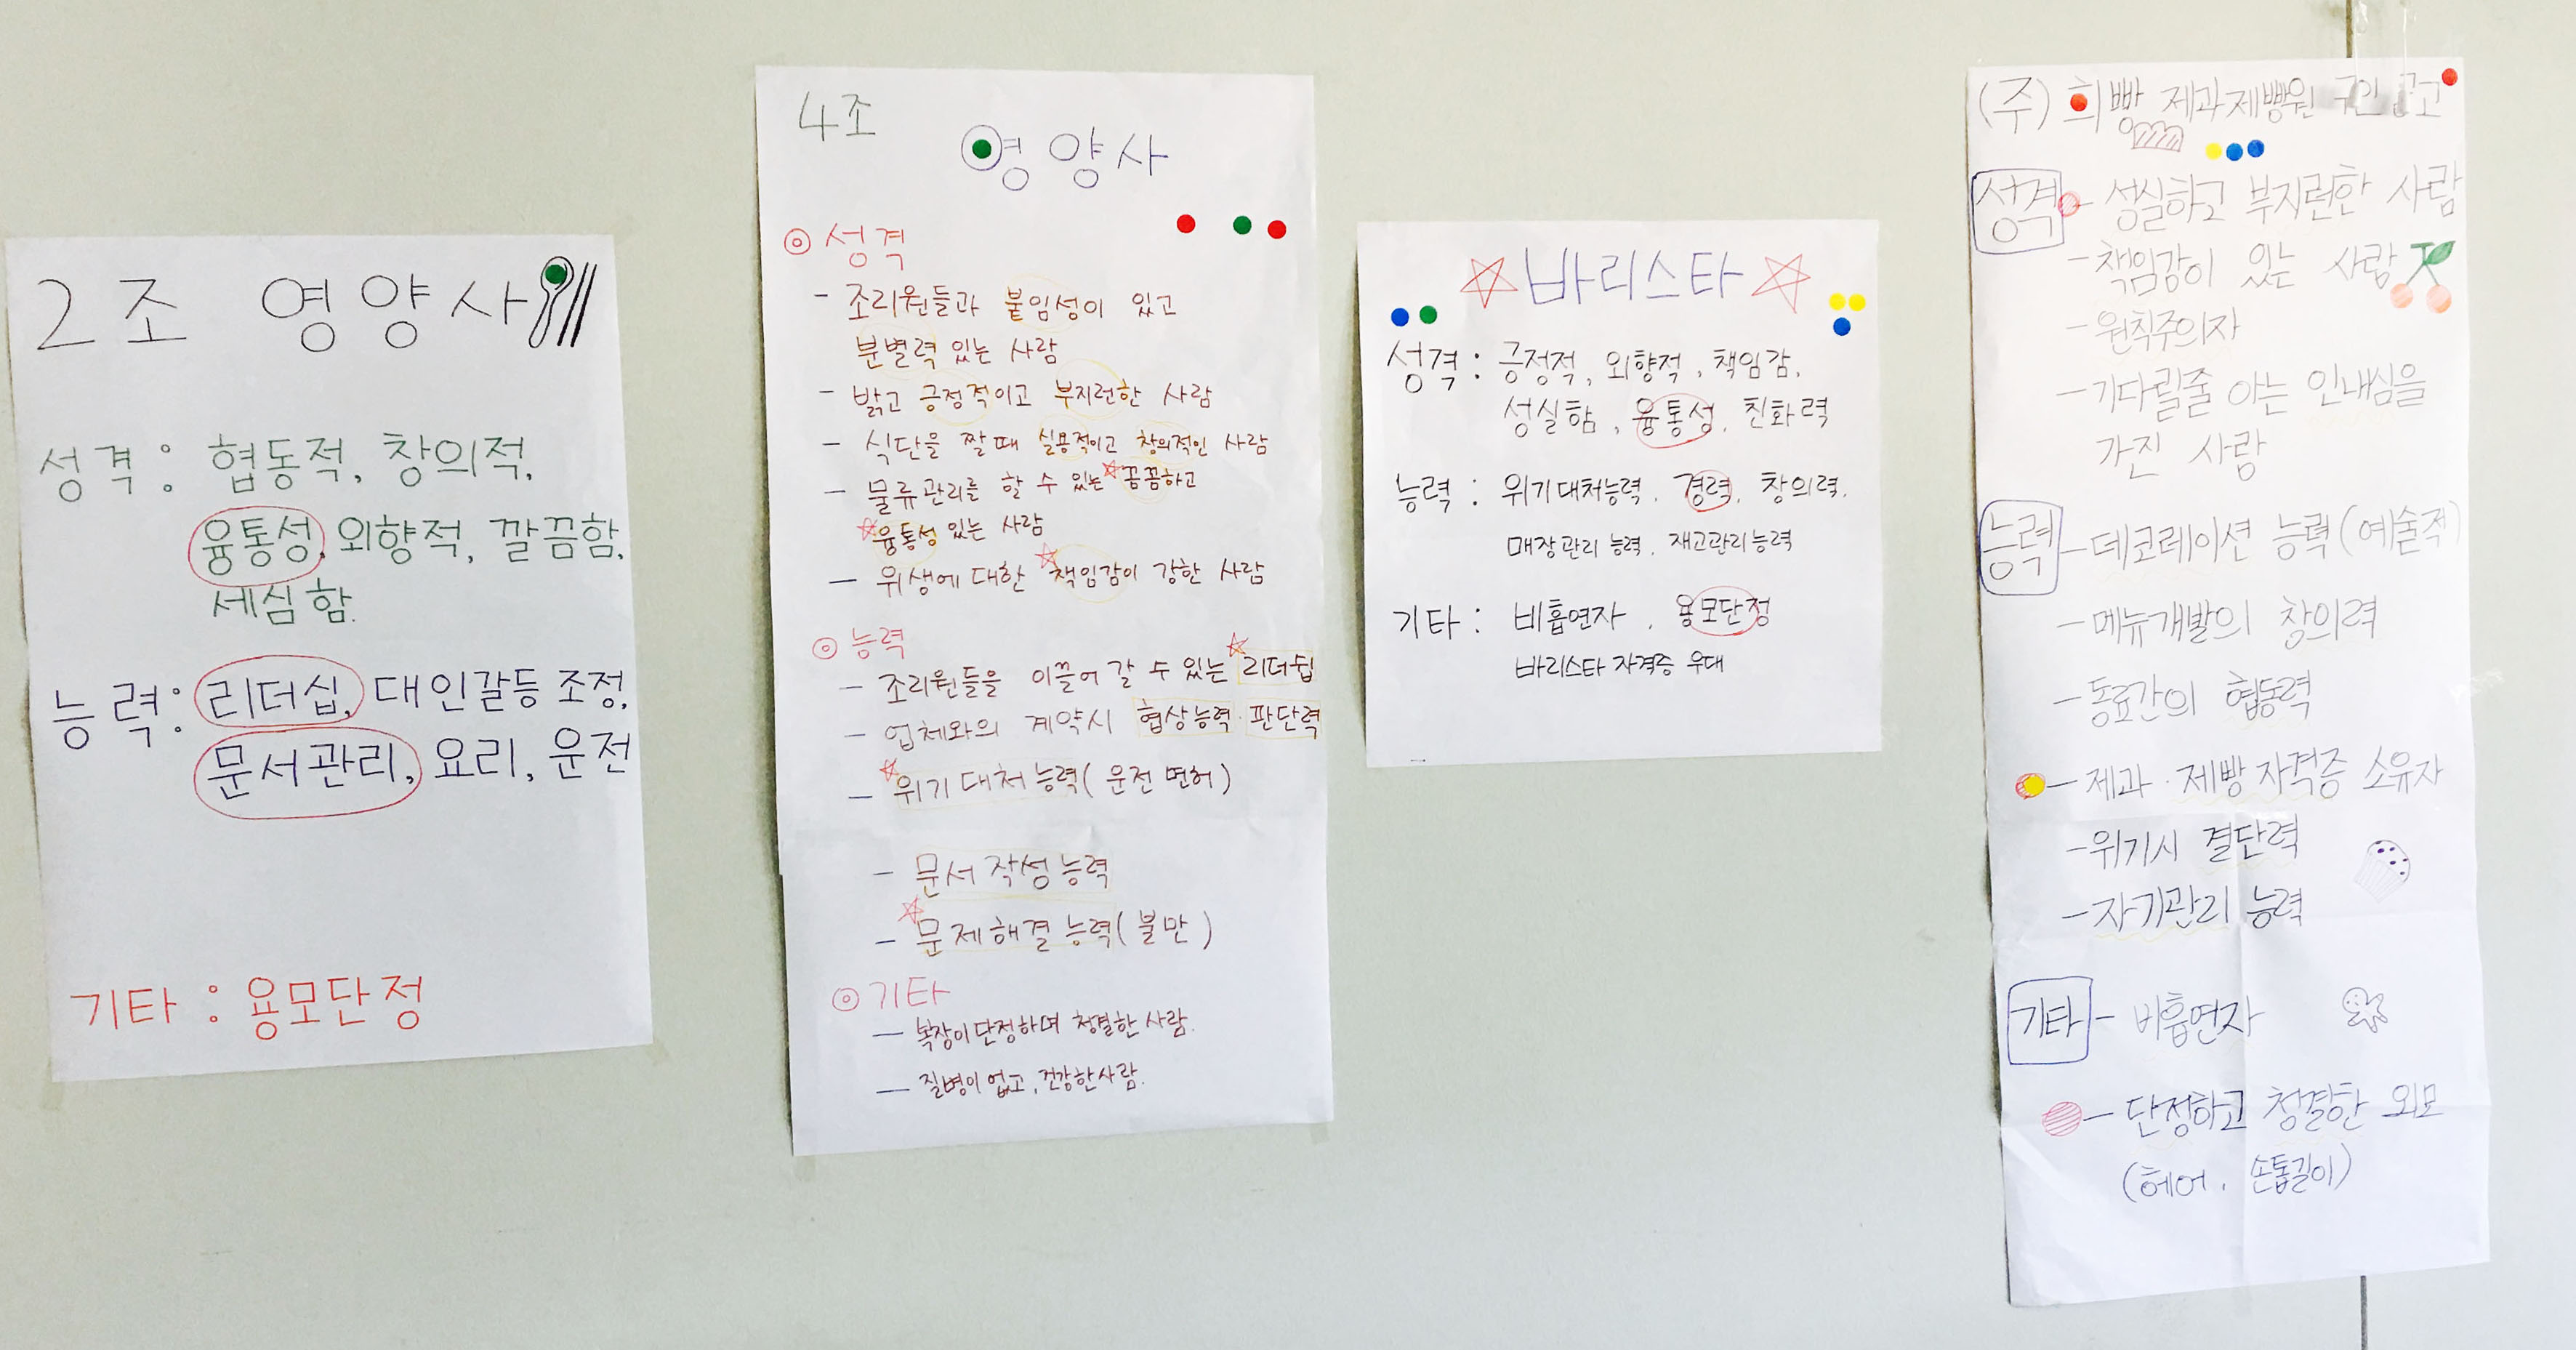 2조 영양사
성격: 협동적, 창의적,
융통성, 외향적, 깔끔함,
세심함.
능력: 리더십, 대인갈등 조정,
문서관리, 요리, 운전
기타 : 용모단정
4조
영양사
◎ 성격
- 조리원들과 붙임성이 있고
분별력 있는 사람
- 밝고 긍정적이고 부지런한 사람
- 식단을 짤때 실용적이고 창의적인 사람
- 물류관리를 할 수 있는 ☆꼼꼼하고
☆융통성 있는 사람
- 위생에 대한 ☆책임감이 강한 사람
◎ 능력
- 조리원들을 이끌어 갈 수 있는 ☆리더쉽
- 업체와의 계약시 협상능력·판단력
- ☆위기 대처 능력( 운전 면허 )
- 문서 작성 능력
- ☆문제해결 능력( 불만 )
◎ 기타
- 복장이 단정하며 청결한 사람.
- 질병이 없고, 건강한사람.
☆바리스타☆
성격 : 긍정적, 외향적, 책임감,
성실함, 융통성, 친화력
능력 : 위기대처능력, 경력, 창의력,
매장관리 능력, 재고관리능력
기타 : 비흡연자, 용모단정
바리스타 자격증 우대
(주) 희빵 제과제빵원 구인공고
성격 - 성실하고 부지런한 사람
- 책임감이 있는 사람
- 원칙주의자
- 기다릴줄 아는 인내심을
가진 사람
능력 - 데코레이션 능력(예술적)
- 메뉴개발의 창의력
- 동료간의 협동력
- 제과·제빵 자격증 소유자
- 위기시 결단력
- 자기관리 능력
기타 - 비흡연자
- 단정하고 청결한 외모
(헤어, 손톱길이)